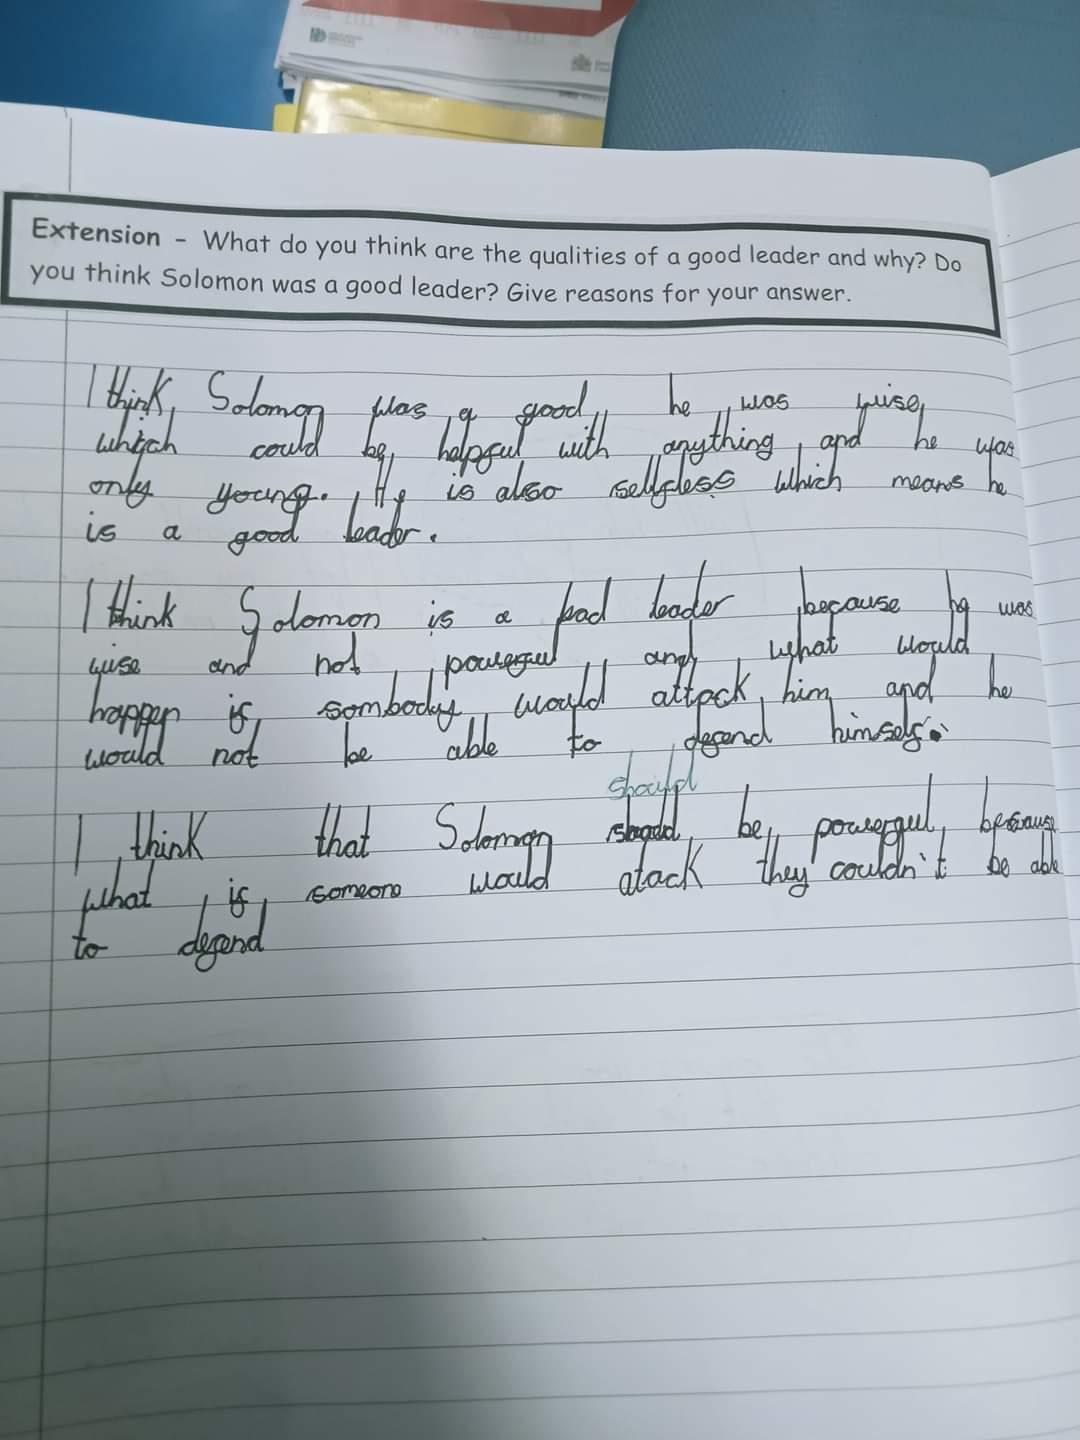 Extension - What do you think are the qualities of a good leader and why? Do
you think Solomon was a good leader? Give reasons for your answer.
I think Solomon was a good, he was wise,
which could be helpful with anything, and he was
only young. He is also selfless which means he
is a good leader.
I think Solomon is a bad leader because he was
wise and not powerful and what would
happen if sombody would attack him and he
would not be able to defend himself.
should
I think that Solomon shoald be powerful, because
what if someone would atack they couldn't be able
to defend